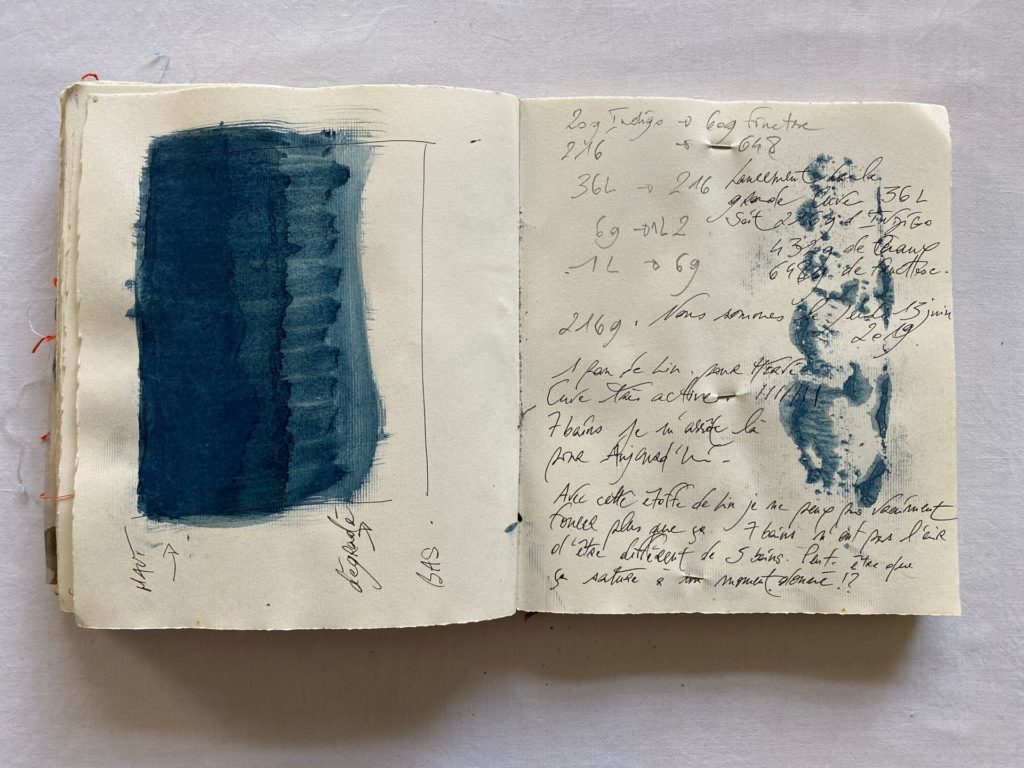 HAUT
dégradé
BAS.
20g Indigo → 60g fructose
216 → 648
36L → 216
6g → 1L
1L → 6g
216g.
Lancement de la
grande cuve 36L
soit 216g d'Indigo
432g de chaux
648g de fructose.
Nous sommes le Jeudi 13 juin
2019.
1 pan de Lin. pour Hervé
Cuve très active - 1/1/1/1/1
7 bains je m'arrête là
pour Aujourd'hui -
Avec cette étoffe de Lin je ne peux pas vraiment
foncer plus que ça. 7 bains n'ont pas l'air
d'être différent de 5 bains. Peut-être que
ça sature à un moment donné !?